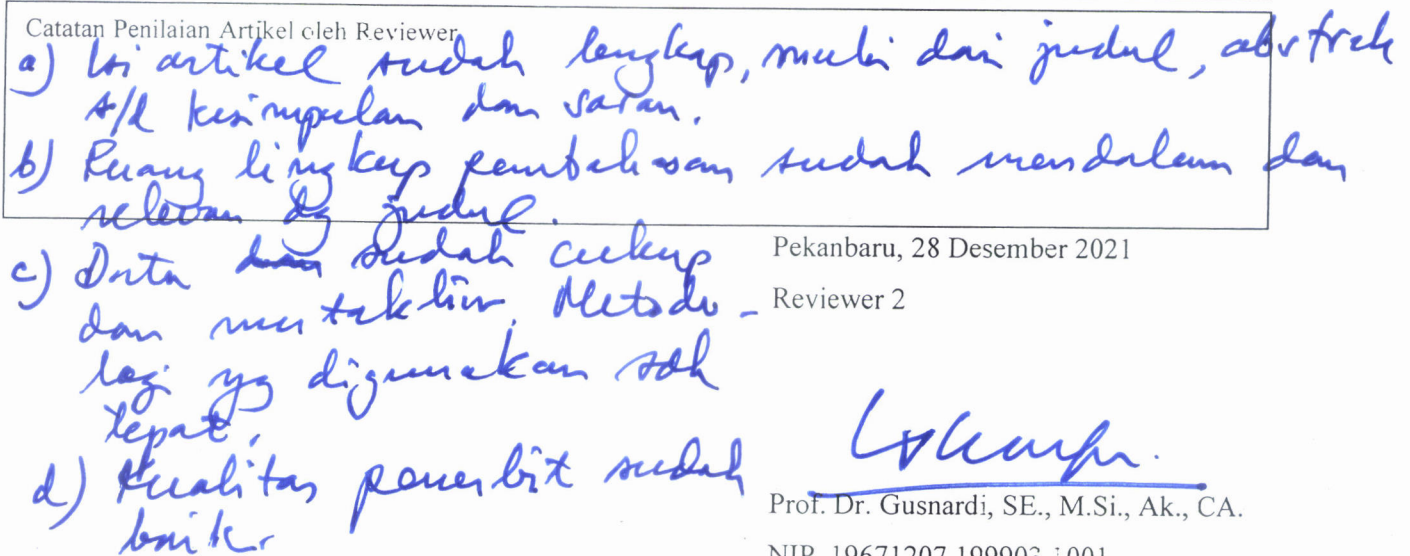 Catatan Penilaian Artikel oleh Reviewer
a) Isi artikel sudah lengkap, mulai dari judul, abstrak
s/d kesimpulan dan saran.
b) Ruang lingkup pembahasan sudah mendalam dan
relevan dg judul.
c) Data dan sudah cukup
dan mutakhir. Metodo-
logi yg digunakan sdh
tepat.
d) Kualitas penerbit sudah
baik.
Pekanbaru, 28 Desember 2021
Reviewer 2
Prof. Dr. Gusnardi, SE., M.Si., Ak., CA.
NIP. 19671207 199903 1001